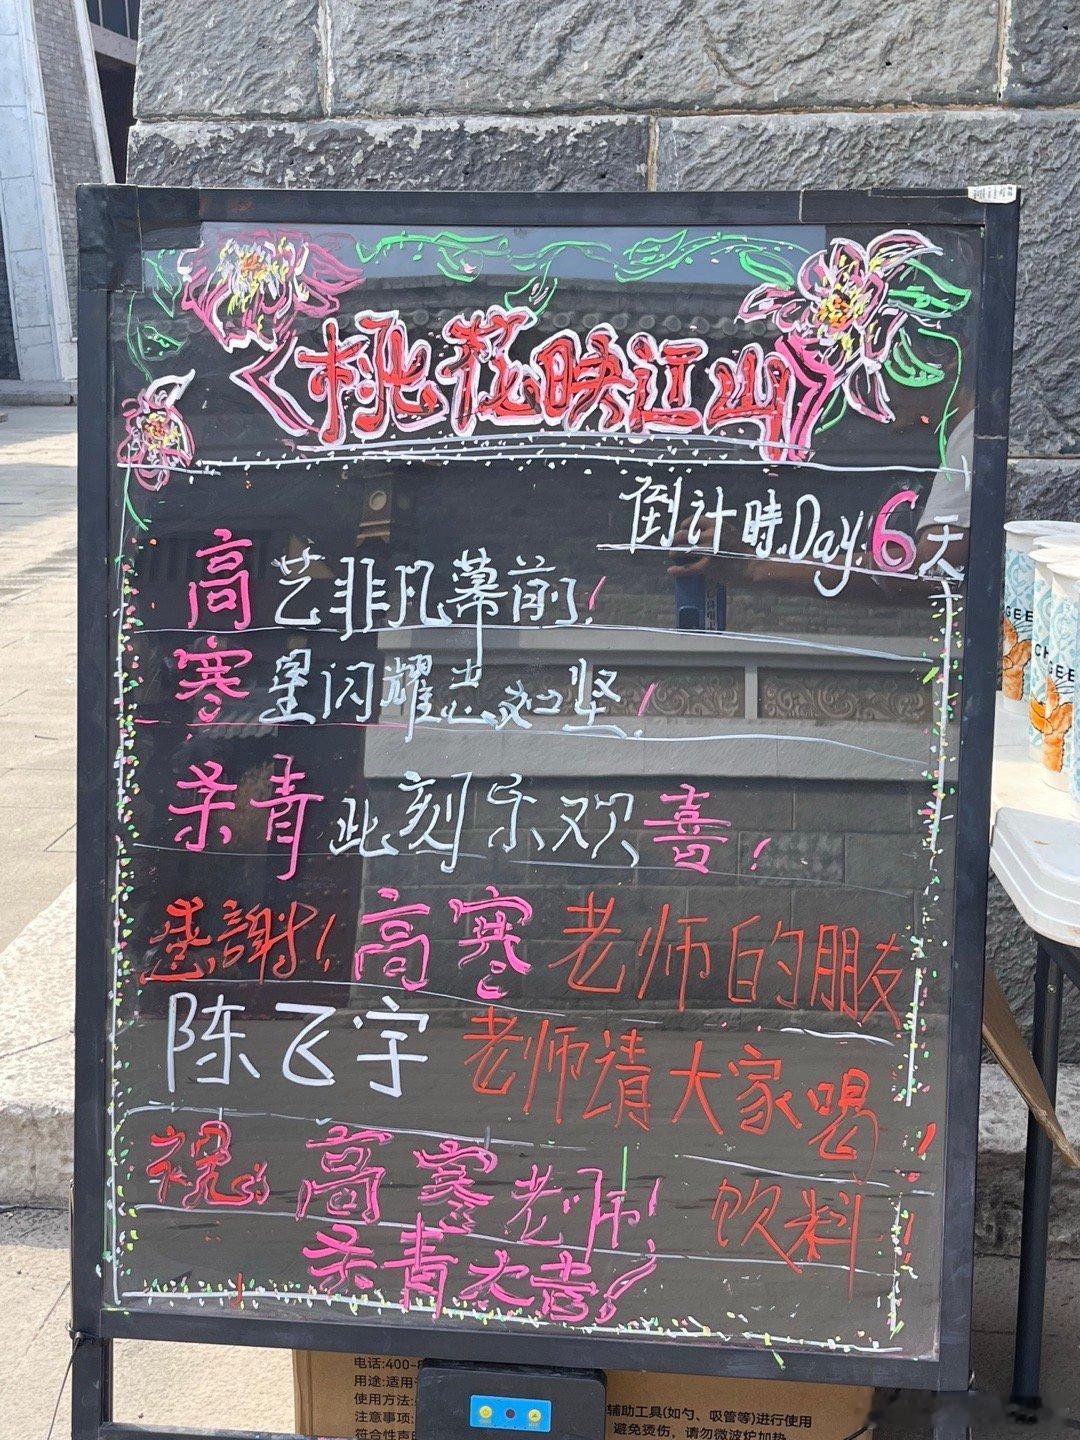 《桃花映江山》
倒计時.Day.6天
高艺非凡幕前!
寒星闪耀志如坚!
杀青此刻乐欢喜!
感謝!高寒老师的朋友
陈飞宇老师请大家喝!
祝高寒老师!饮料!
杀青大吉!
电话:400-8
用途:适用于
使用方法:
注意事项:
符合性声明
辅助工具(如勺、吸管等)进行使用
避免烫伤，请勿微波炉加热